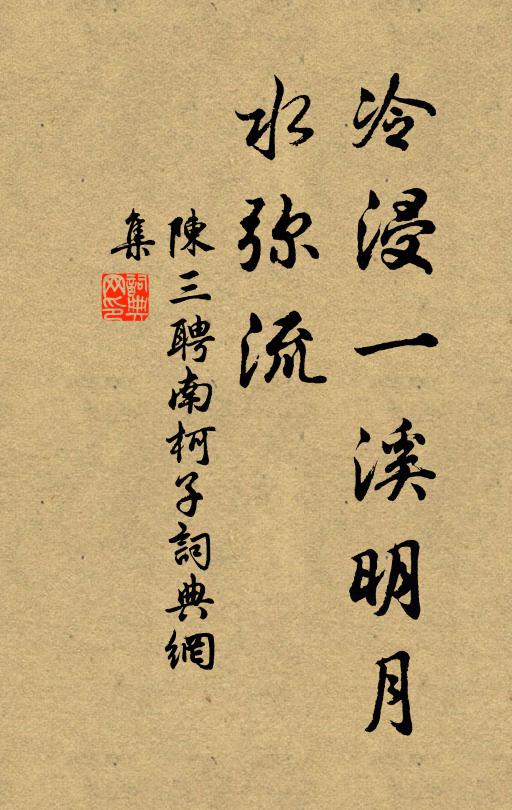 冷浸一溪明月
水弥流
陳三聘南柯子詞典網
集
詞典
网印